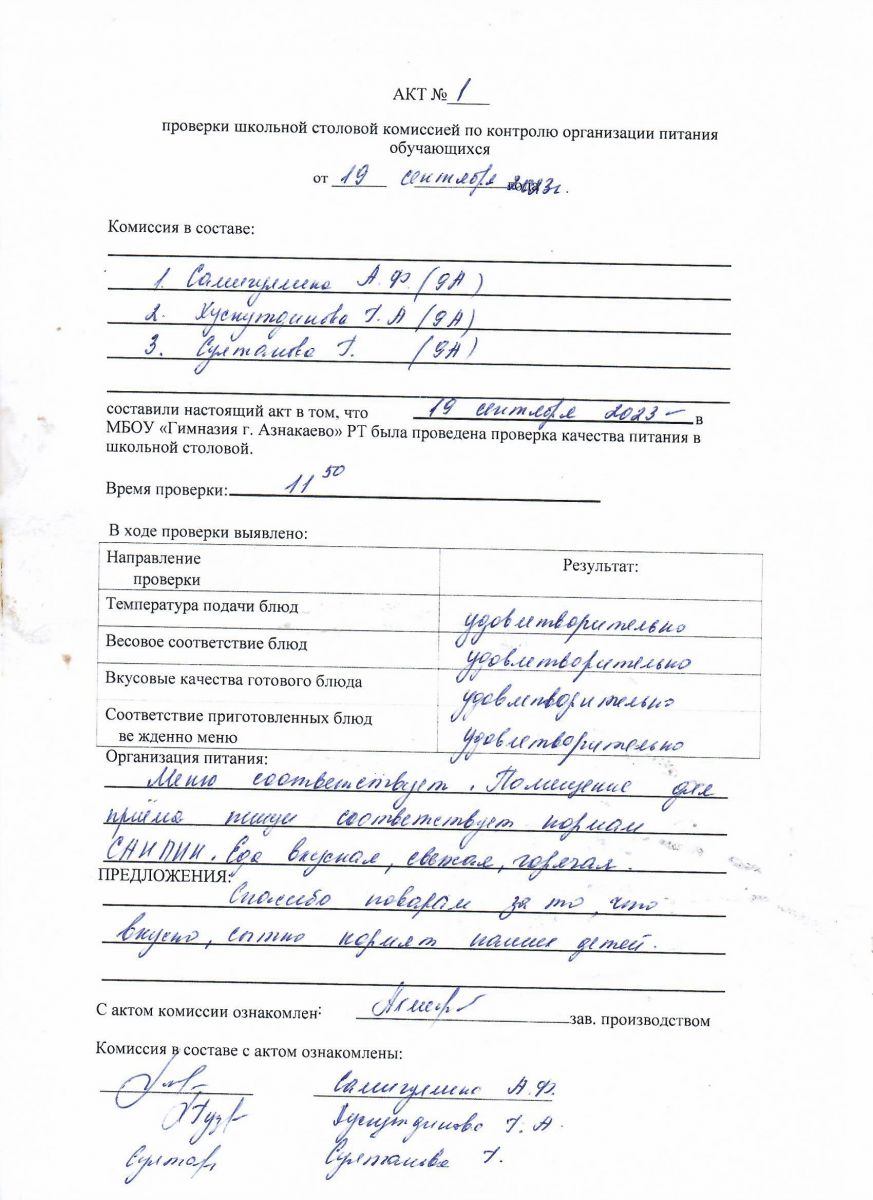 АКТ № 1
проверки школьной столовой комиссией по контролю организации питания
обучающихся
от 19 сентября 2023г.
Комиссия в составе:
1. Самигуллина А.Ф. (9А)
2. Хуснутдинова Г.А (9А)
3. Султанова Г. (9А)
составили настоящий акт в том, что 19 сентября 2023 – в
МБОУ «Гимназия г. Азнакаево» РТ была проведена проверка качества питания в
школьной столовой.
Время проверки: 11 50
В ходе проверки выявлено:
Направление Результат:
проверки
Температура подачи блюд удовлетворительно
Весовое соответствие блюд удовлетворительно
Вкусовые качества готового блюда удовлетворительно
Соответствие приготовленных блюд удовлетворительно
ве жденно меню
Организация питания:
Меню соответствует. Помещение для
приёма пищи соответствует нормам
САНПИН. Еда вкусная, свежая, горячая.
ПРЕДЛОЖЕНИЯ:
Спасибо поварам за то, что
вкусно, сытно кормят наших детей.
С актом комиссии ознакомлен: зав. производством
Комиссия в составе с актом ознакомлены:
Самигуллина А.Ф.
Хуснутдинова Г.А.
Султанова Г.